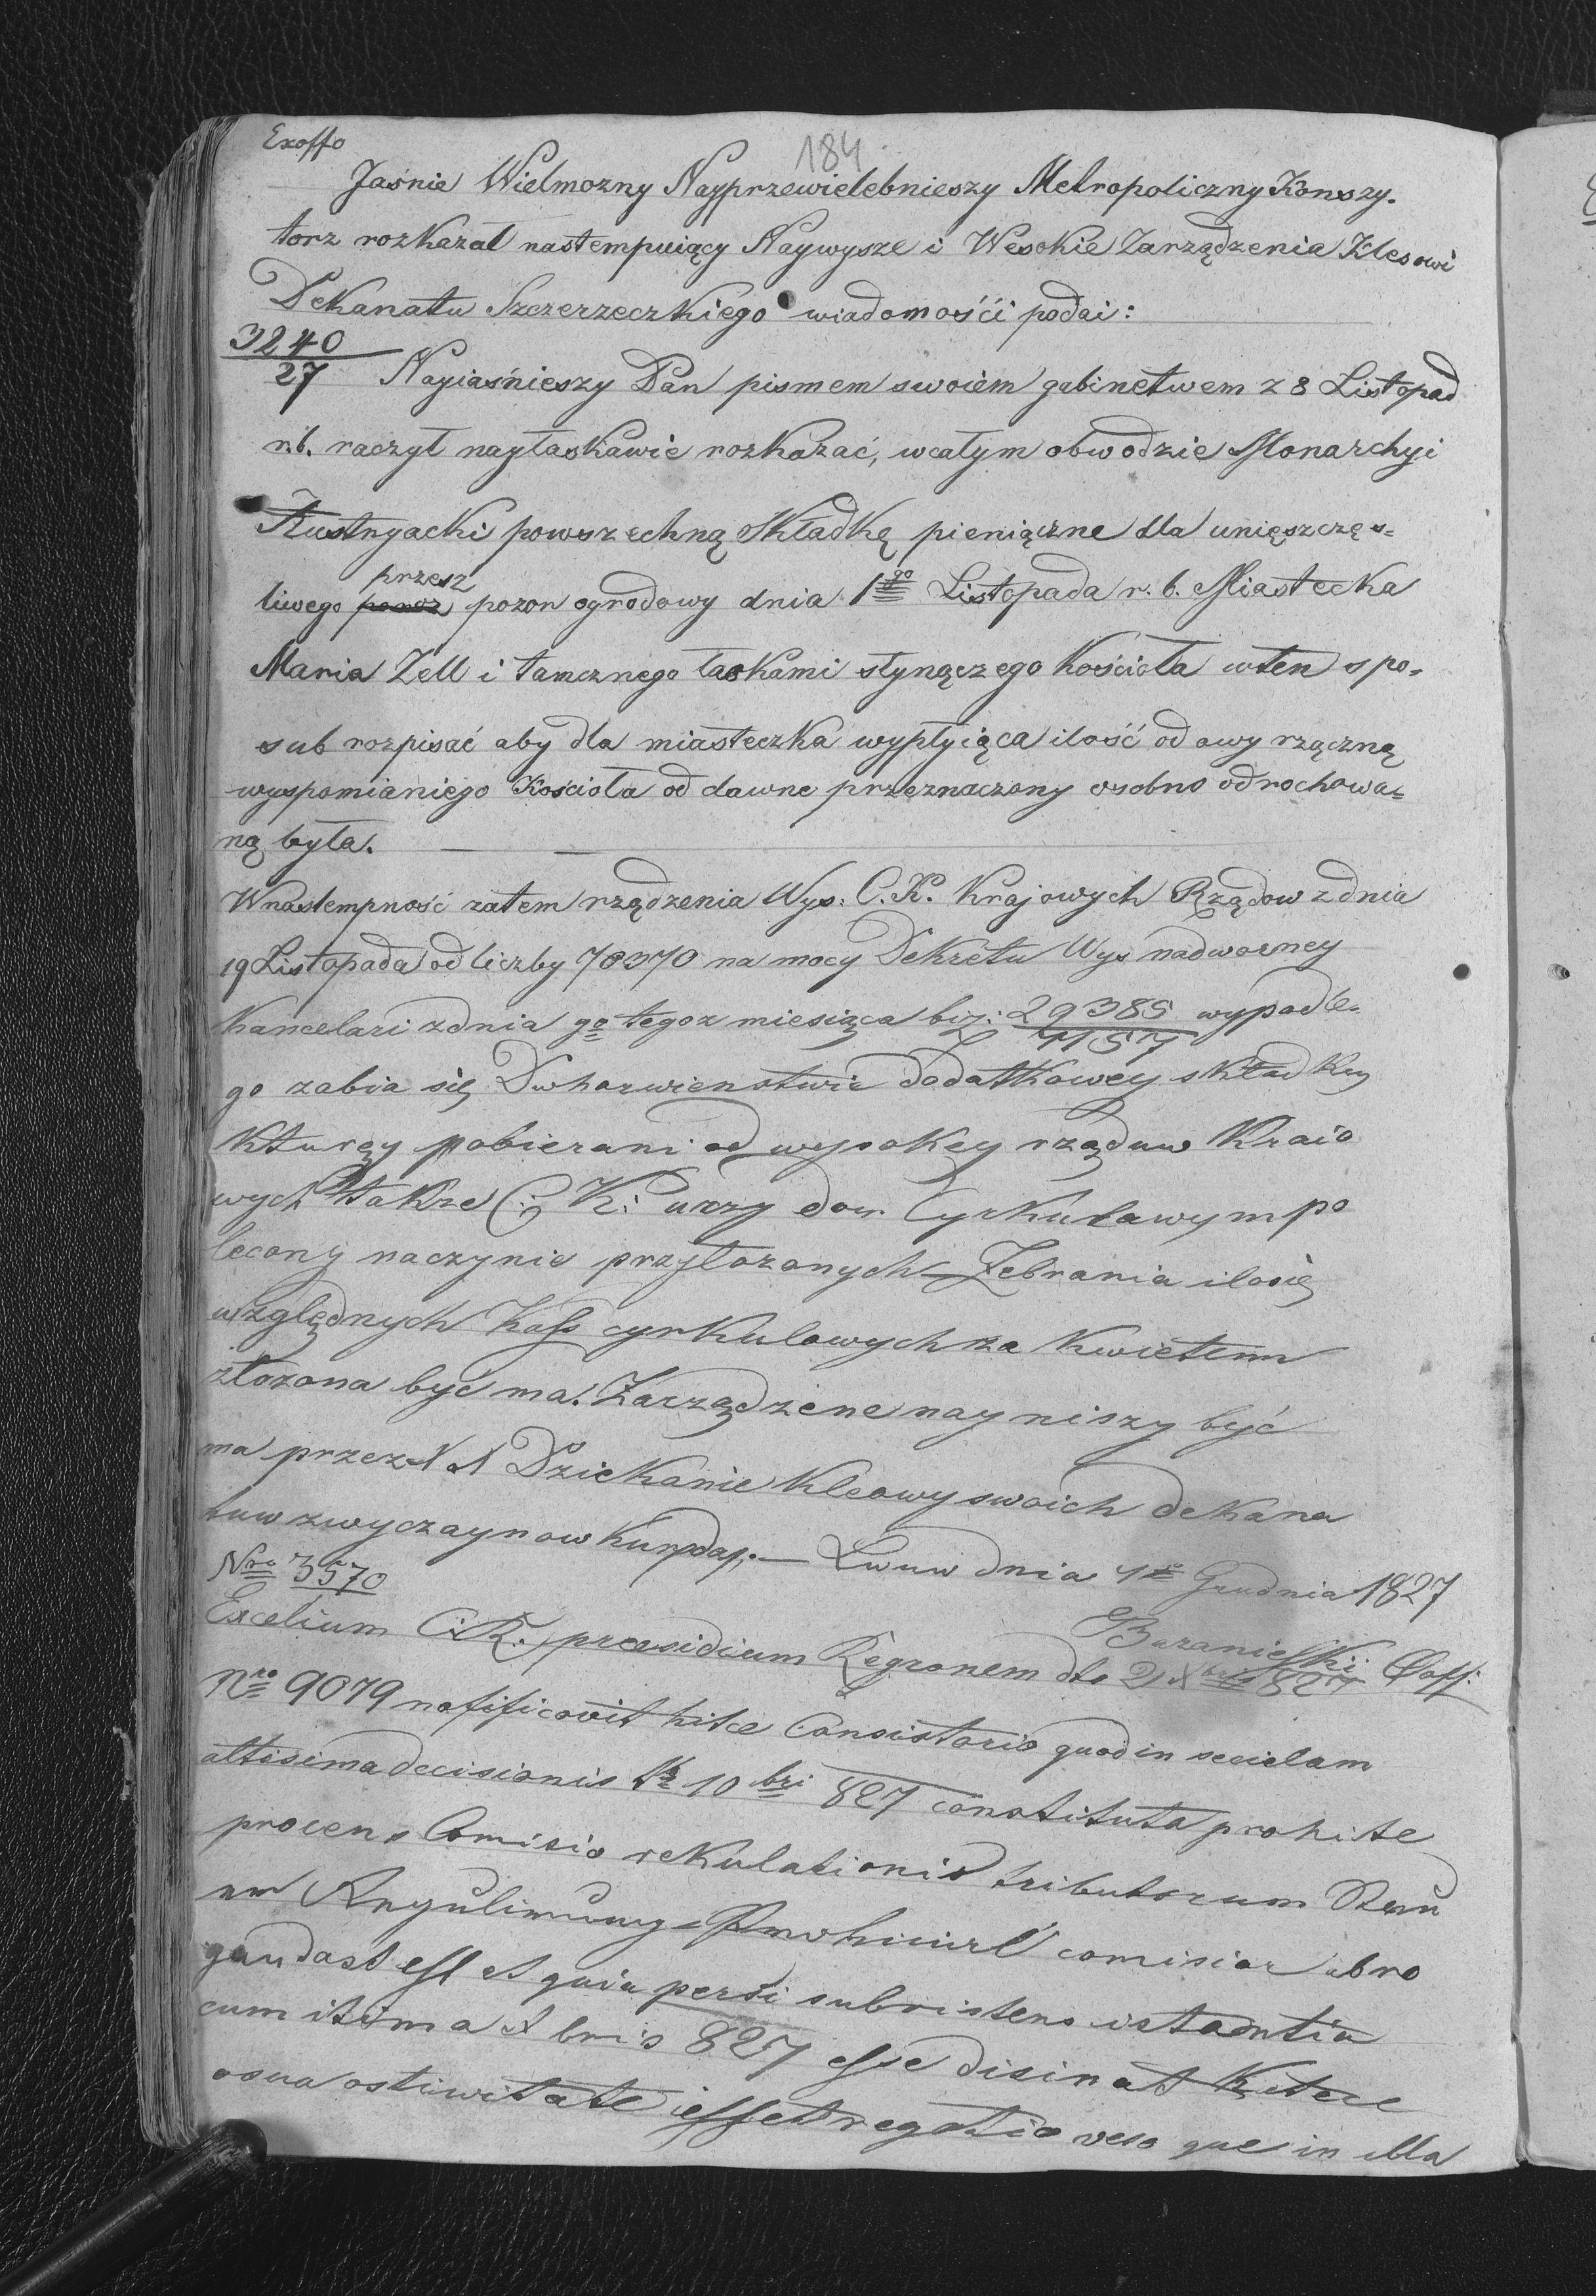 Exoffo
184
Jaśnie Wielmozny Nayprzewielebnieszy Metropoliczny Konszy-
torz rozkazał nastempuiący Naywysze i Wesokie Zarządzenia Klesowi
Dekanatu Szczerzeczkiego wiadomośći podai:
3240
27 Nayiaśnieszy Pan pismem swoiem gabinetwem z 8 Listopad
r.b. raczył nayłaskawie rozkazać, wcałym obwodzie Monarchyi
Austryacki powszechną składkę pieniączne dla unięszczęs-
przesz
liwego pozor ogrodowy dnia 1go Listopada r. b. Miastecka
Maria Zell i tamcznego łaskami słynączego kościoła wten spo-
sub rozpisać aby dla miasteczka wypłyiąca ilość od owy rzączną
wyspomianiego Kościoła od dawne przeznaczony osobno odrochowa-
ną była.
Wnastempność zatem rządzenia Wys. C. K. Krajowych Rządow zdnia
19 Listopada od liczby 78370 na mocy Dekretu Wys nadworney
Kancelari zdnia go tegoz miesiąca biz: 29385 wypodle-
4157
go zabia się Duhorwienstwie dodatkowey skład
kturęy pobierani od wysokey rząduw Kraio
wych także C. K. urzy dow Cyrkułowym po
lecony naczynie przyłozonych Zebrania ilosię
względnych Kass cyrkulowych za kwietem
złozona być ma. Zarządzene nayniszy być
ma przez N N Dziekanie kleowy swoich dekana
tuw zwyczaynow — Lwuw dnia 4go Grudnia 1827
Nro 3570
Excelium C. R. præsidium Regionem dto 2 Xbris 827
Nro 9079 nofificovit hitce Consistorio quod in seciclam
altisima decisionis 10bri 827 constituta prohite
procens Comisio rekulationis tributorum
comisior abro
est et quia persi subristens istantia
cum itima Xbris 827 esse disinat
osua ostiwitate iesset regotio vero que in illa